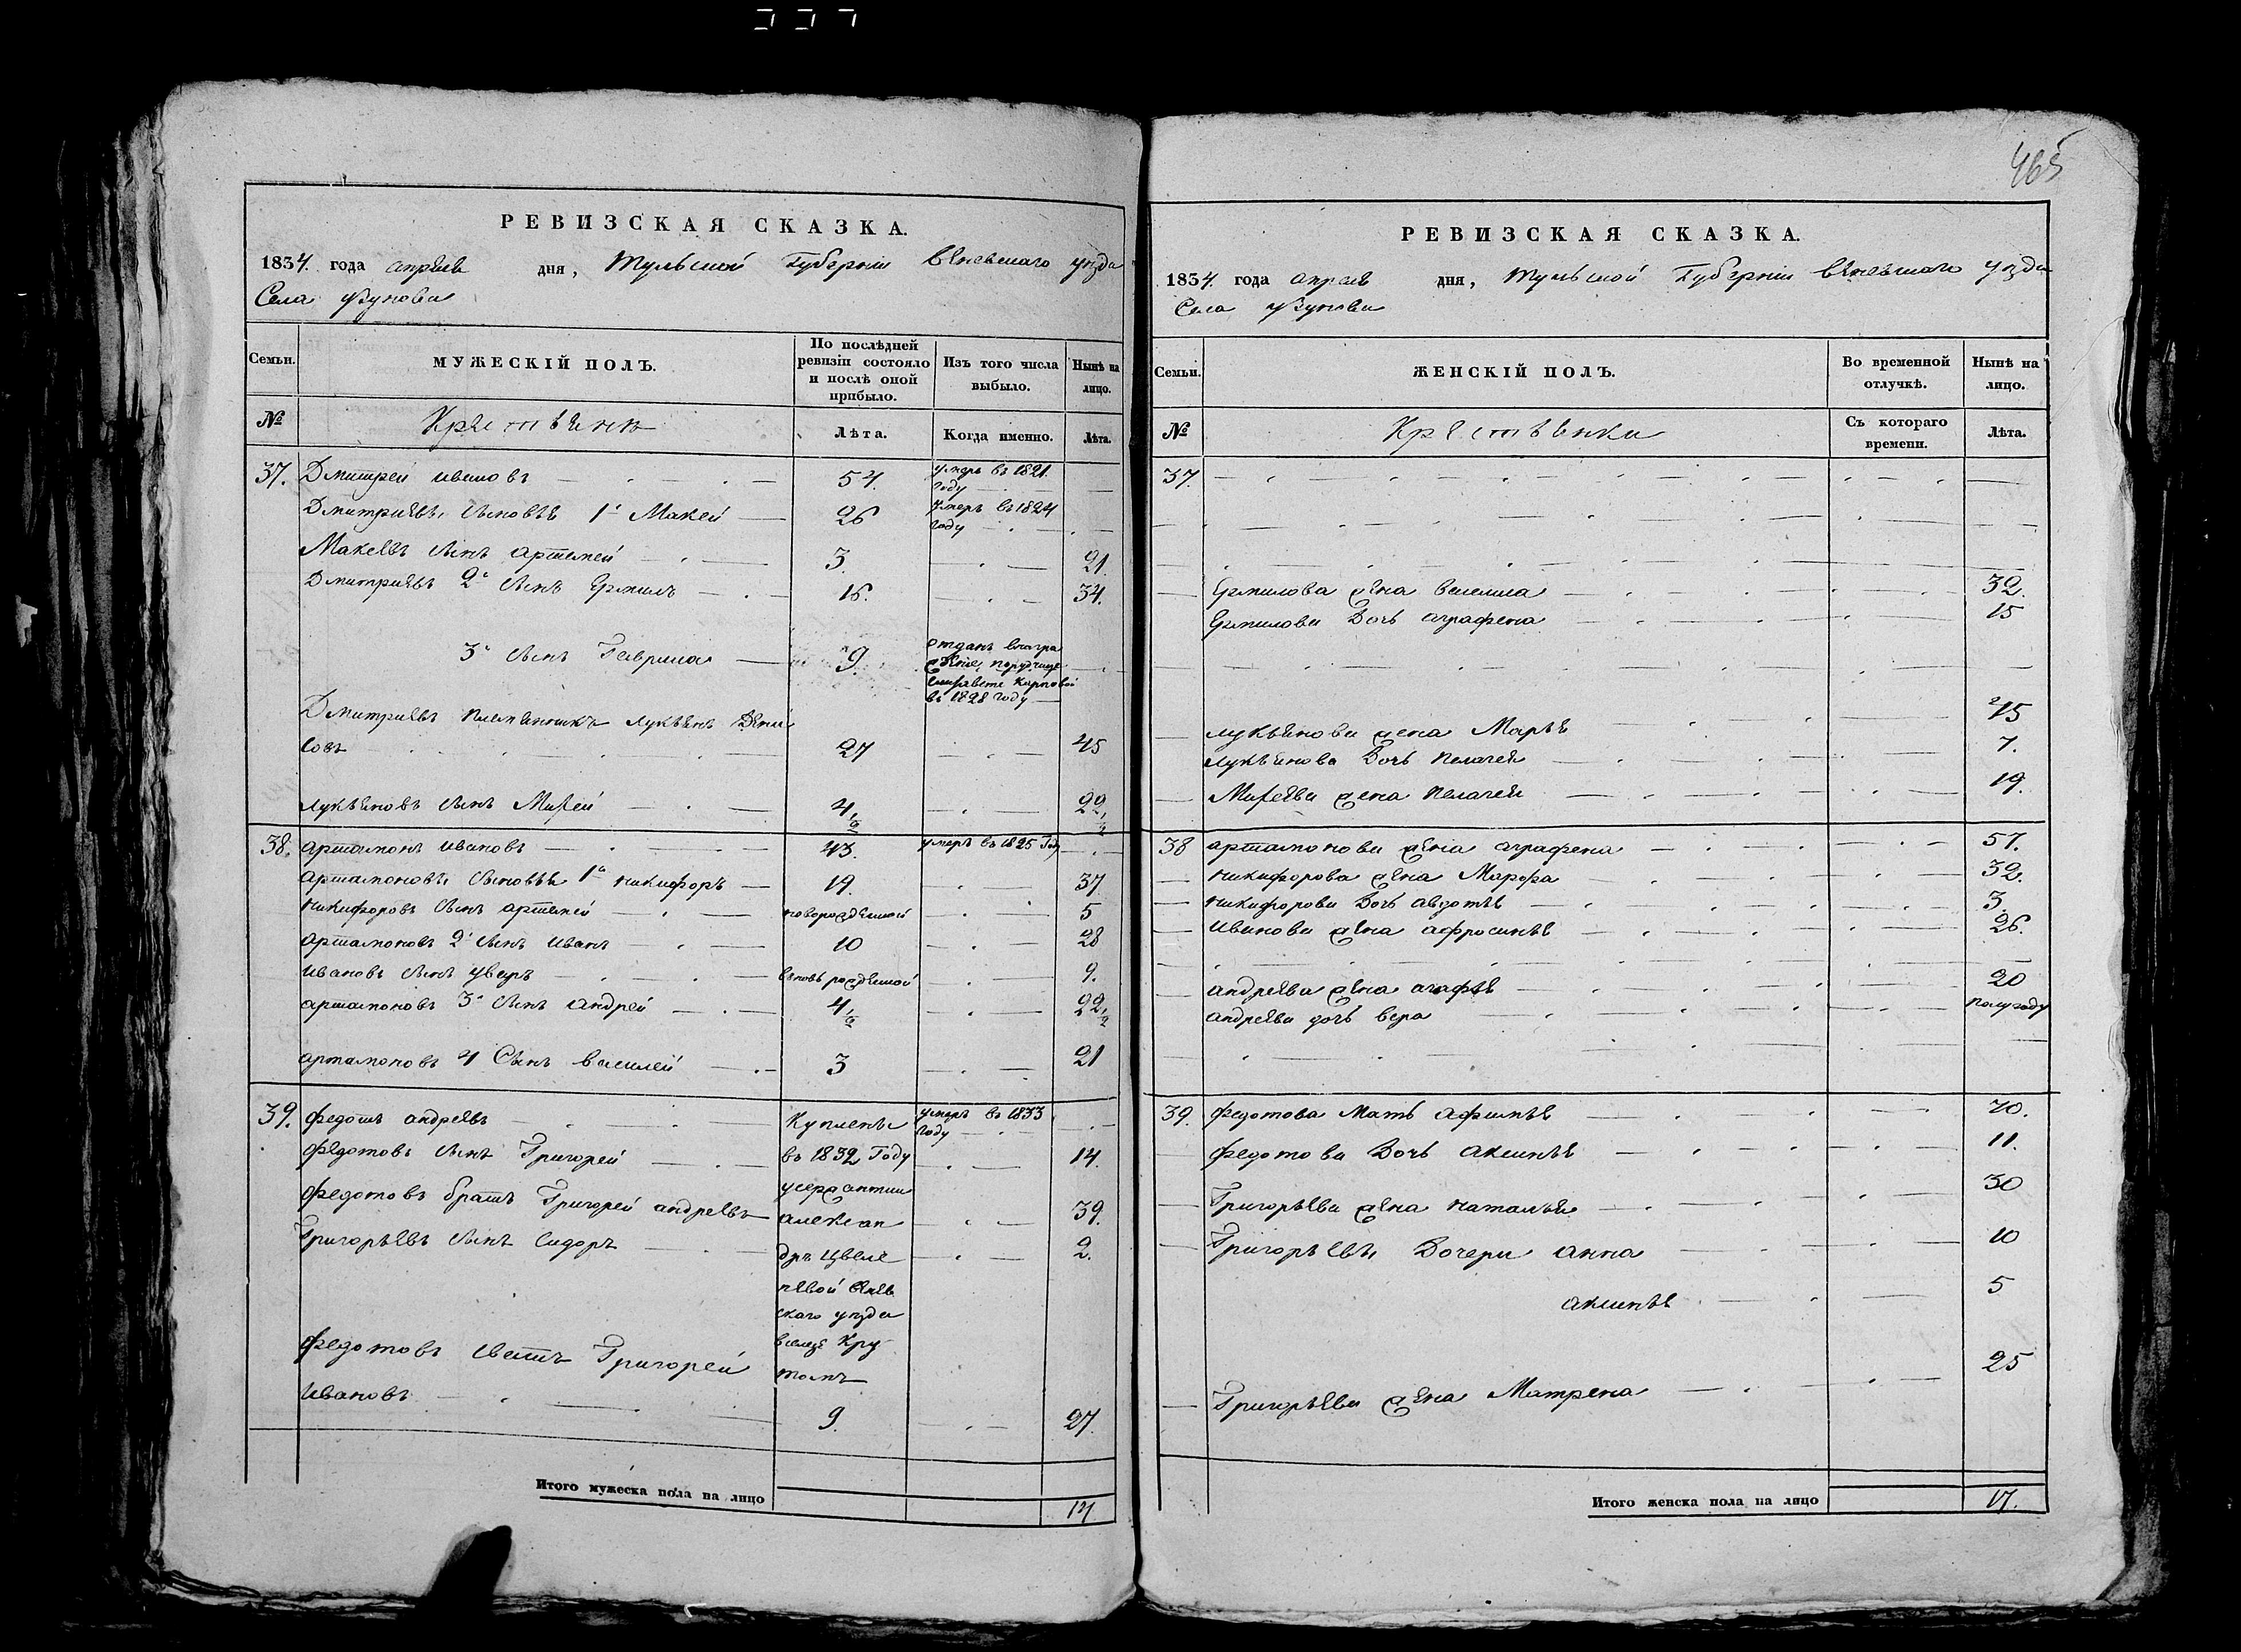 465
РЕВИЗСКАЯ СКАЗКА.
1834. года апреля дня, Тульской Губернии Веневскаго уезда
Села Узунова
Семьи. МУЖЕСКІЙ ПОЛЪ. По послѣдней ревизіи состояло и послѣ оной прибыло. Изъ того числа выбыло. Нынѣ на лицо.
№ Крестьяне Лѣта. Когда именно. Лѣта.
37. Дмитреи ивановъ 54. умеръ въ 1821. году
Дмитриевы сыновья 1й Макей 26 умеръ въ 1824 году
Макеевъ сынъ артемей 3. 21.
Дмитриевъ 2й сынъ Ермилъ 16. 34.
3й сынъ Гаврила 9. отданъ внагра порутчице Елизавете Карповой въ 1828 году
Дмитриевъ племянникъ лукьянъ Дени
совъ 27 45
лукьяновъ сынъ Мирей 4 1/2 22 1/2
38. артамонъ ивановъ 43. умеръ въ 1825 Году
артамоновы сыновья 1й никифоръ 19. 37
никифоровъ сынъ артемей новорожденной 5
артамоновъ 2й сынъ иванъ 10 28
ивановъ сынъ уваръ вновь рожденной 9.
артамоновъ 3й сынъ андрей 4 1/2 22 1/2
артамоновъ 4 Сынъ василей 3 21
39. федотъ андреевъ Куплены умеръ въ 1833 году
федотовъ сынъ Григорей въ 1832 Году 14.
федотовъ братъ Григорей андреевъ усержантши алексан 39.
Григорьевъ сынъ сидоръ 2.
скаго уезда
вселе Кру
томъ
федотовъ сватъ Григорей
ивановъ 9. 27.
Итого мужеска пола на лицо 14
РЕВИЗСКАЯ СКАЗКА.
1834. года апреля дня, Тульской Губернии веневскаго уезда
Села Узунова
Семьи. ЖЕНСКІЙ ПОЛЪ. Во временной отлучкѣ. Нынѣ на лицо.
№ Крестьянки Съ котораго времени. Лѣта.
37.
Ермилова жена василиса 32.
Ермилова Дочь аграфена 15
лукьянова жена Марья 45
лукьянова Дочь пелагея 7.
Миреева жена пелагея 19.
38 артамонова жена аграфена 57.
никифорова жена Марфа 32.
никифорова Дочь авдотья 3.
иванова жена афросинья 26.
андреева жена агафья 20
андреева дочь вера полугоду
39. федотова мать афимья 70.
федотова Дочь аксинья 11.
Григорьева жена наталья 30
Григорьевы Дочери анна 10
аксинья 5
Григорьева жена Матрена 25
Итого женска пола на лицо 17.